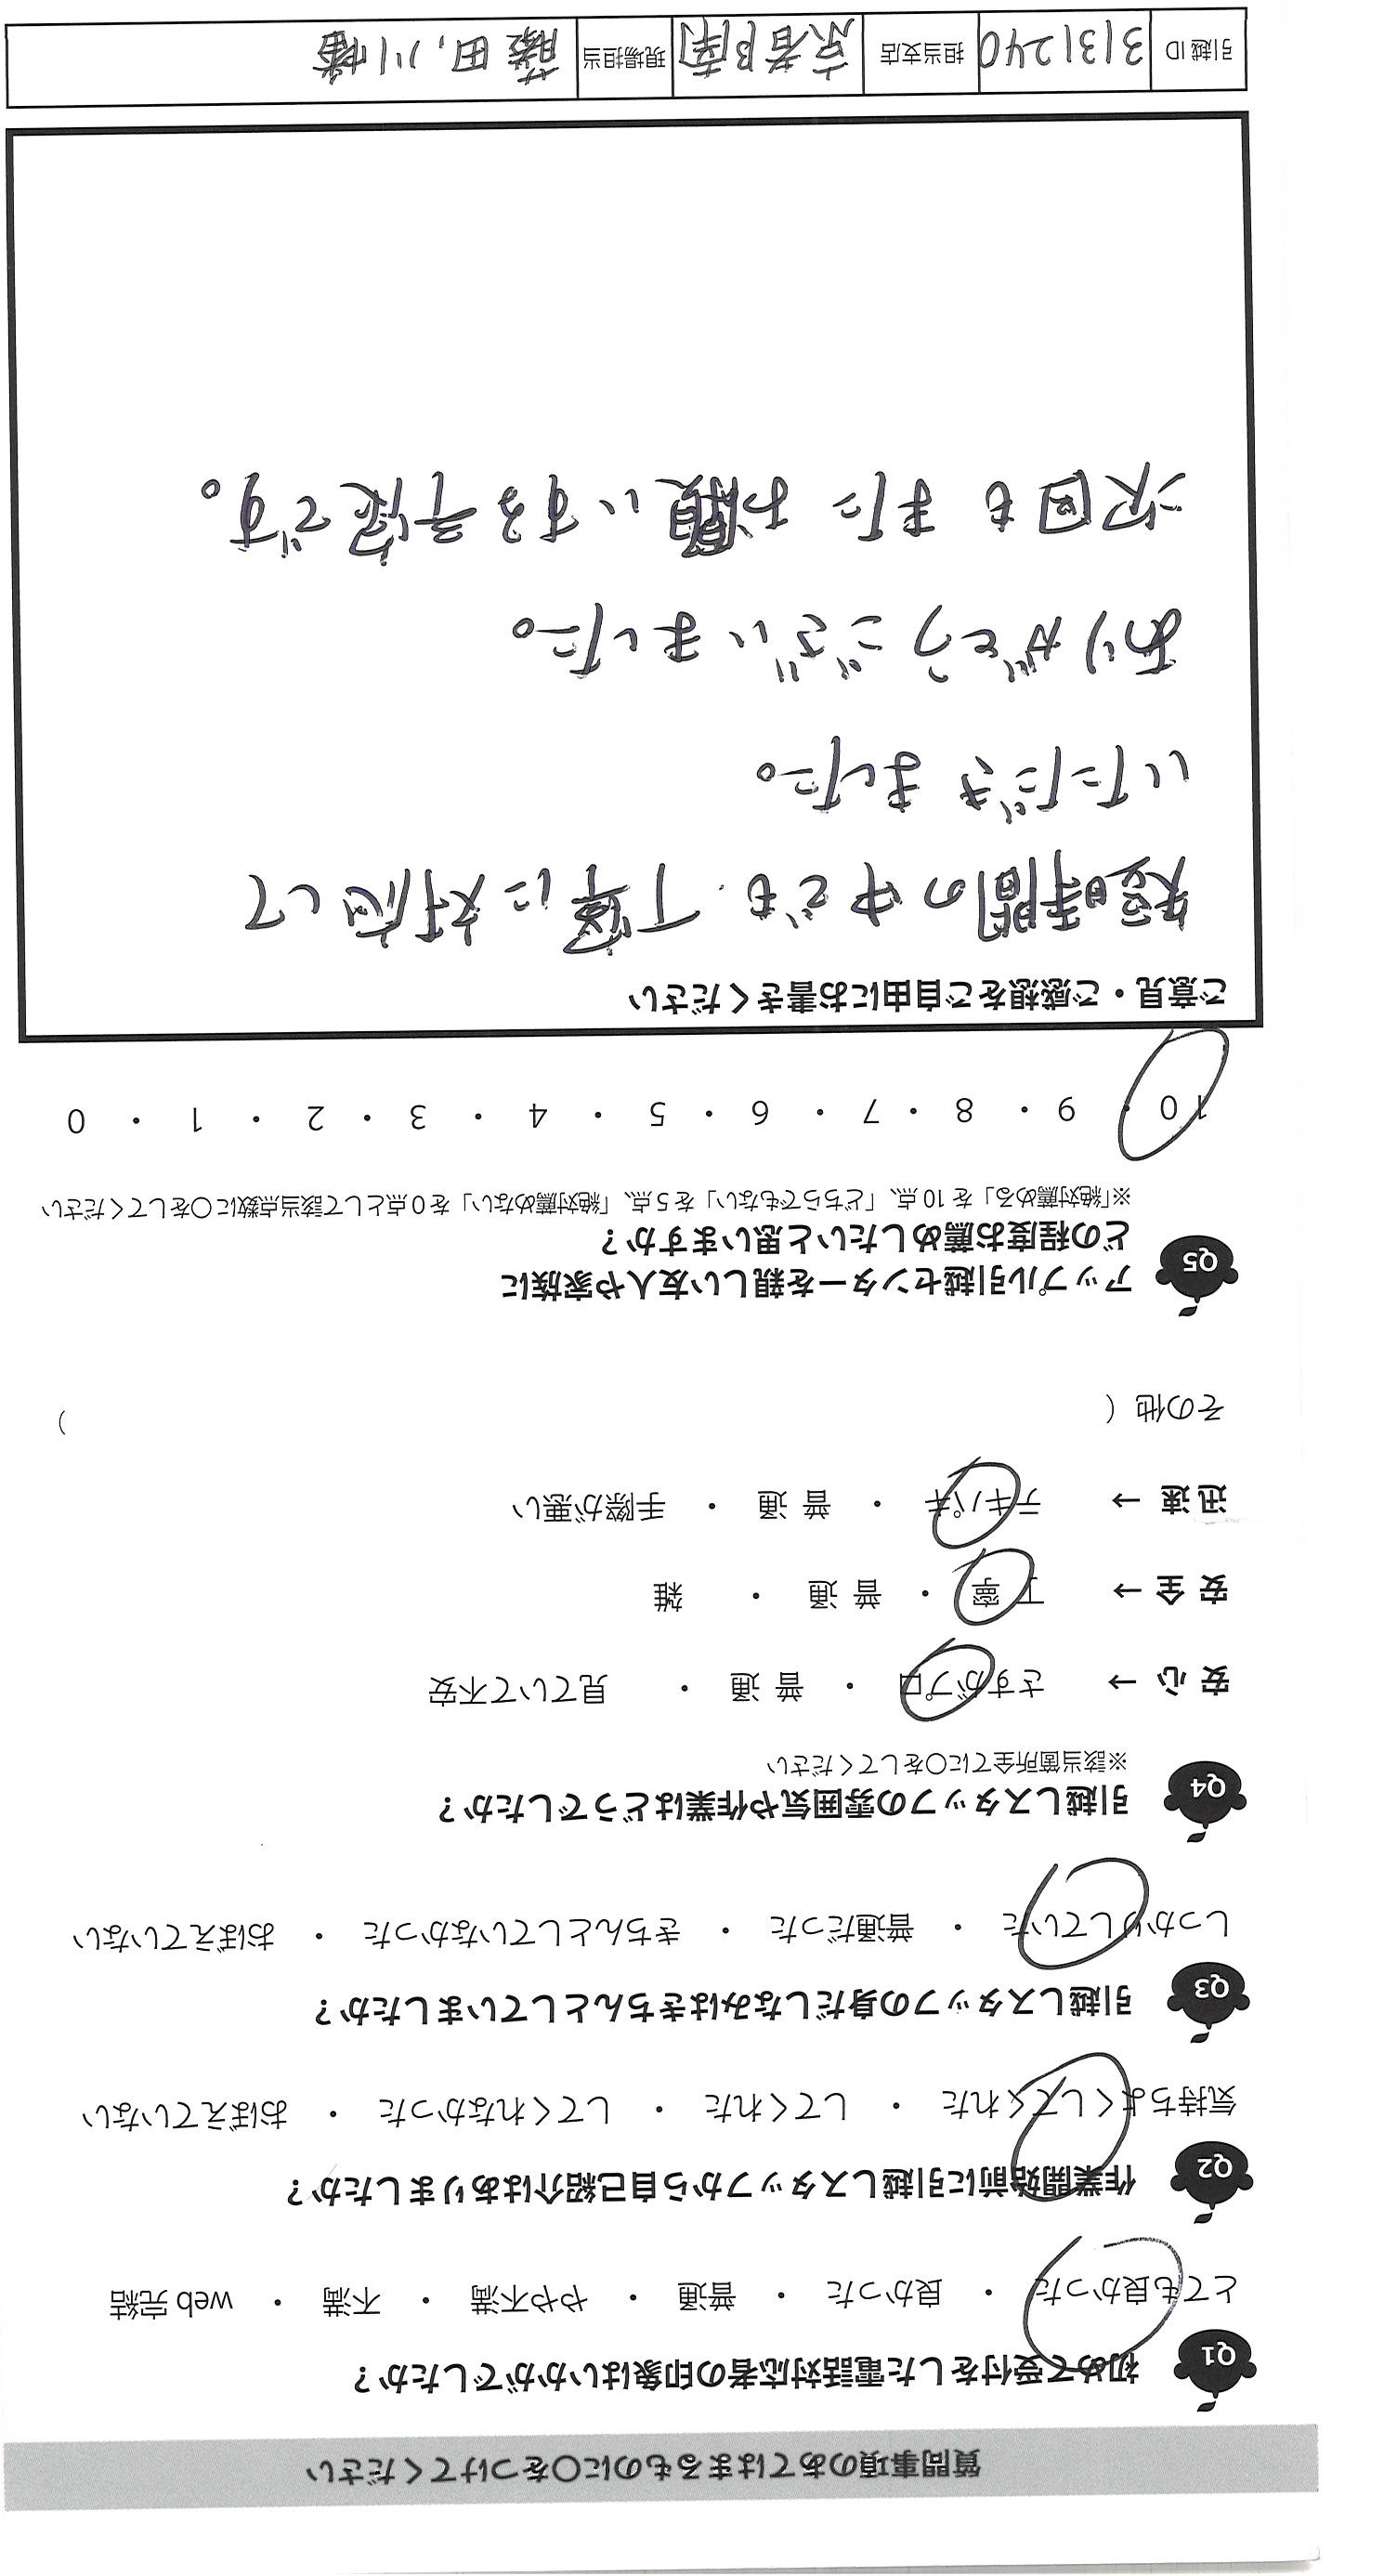 質問事項のあてはまるものに〇をつけてください
Q1 初めて受付をした電話対応者の印象はいかがでしたか？
とても良かった ・ 良かった ・ 普通 ・ やや不満 ・ 不満 ・ web 完結
Q2 作業開始前に引越しスタッフから自己紹介はありましたか？
気持ちよくしてくれた ・ してくれた ・ してくれなかった ・ おぼえていない
Q3 引越しスタッフの身だしなみはきちんとしていましたか？
しっかりしていた ・ 普通だった ・ きちんとしていなかった ・ おぼえていない
Q4 引越しスタッフの雰囲気や作業はどうでしたか？
※該当箇所全てに〇をしてください
安 心 → さすがプロ ・ 普 通 ・ 見ていて不安
安 全 → 丁 寧 ・ 普 通 ・ 雑
迅 速 → テキパキ ・ 普 通 ・ 手際が悪い
その他（ ）
Q5 アップル引越センターを親しい友人や家族に
どの程度お薦めしたいと思いますか？
※「絶対薦める」を 10 点、「どちらでもない」を 5 点、「絶対薦めない」を 0 点として該当点数に〇をしてください
10 ・ 9 ・ 8 ・ 7 ・ 6 ・ 5 ・ 4 ・ 3 ・ 2 ・ 1 ・ 0
ご意見・ご感想をご自由にお書きください
短時間の中でも、丁寧に対応して
いただきました。
ありがとうございました。
次回もまたお願いする予定です。
引越 ID 3131240 担当支店 京都南 現場担当 藤田,川幡